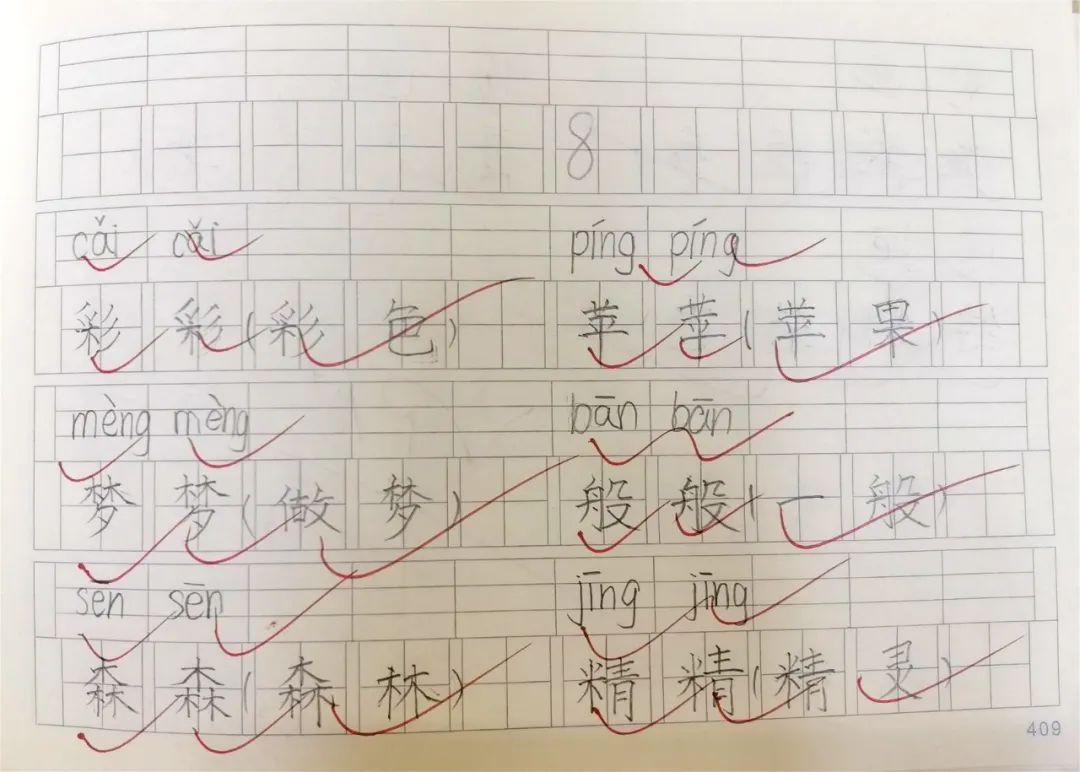 8
cǎi cǎi píng píng
彩 彩(彩 色) 苹 苹(苹 果)
mèng mèng bān bān
梦 梦(做 梦) 般 般(一 般)
sēn sēn jīng jīng
森 森(森 林) 精 精(精 灵)
409